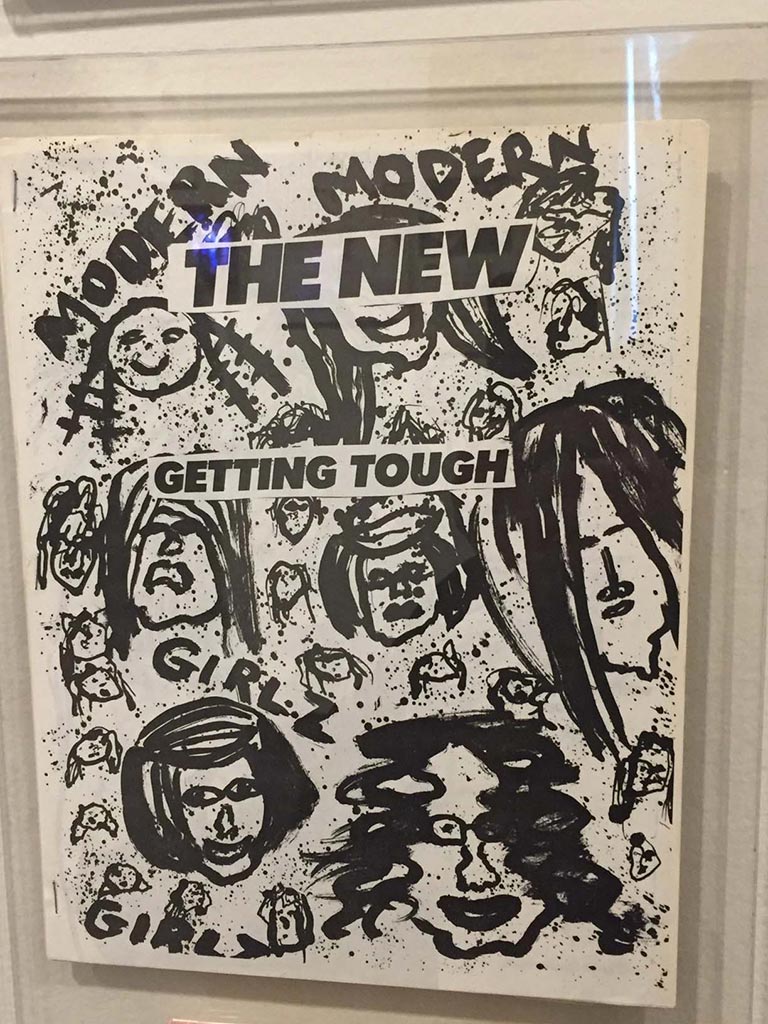 MODERN MODERN
THE NEW
GETTING TOUGH
GIRLZ
GIRLZ